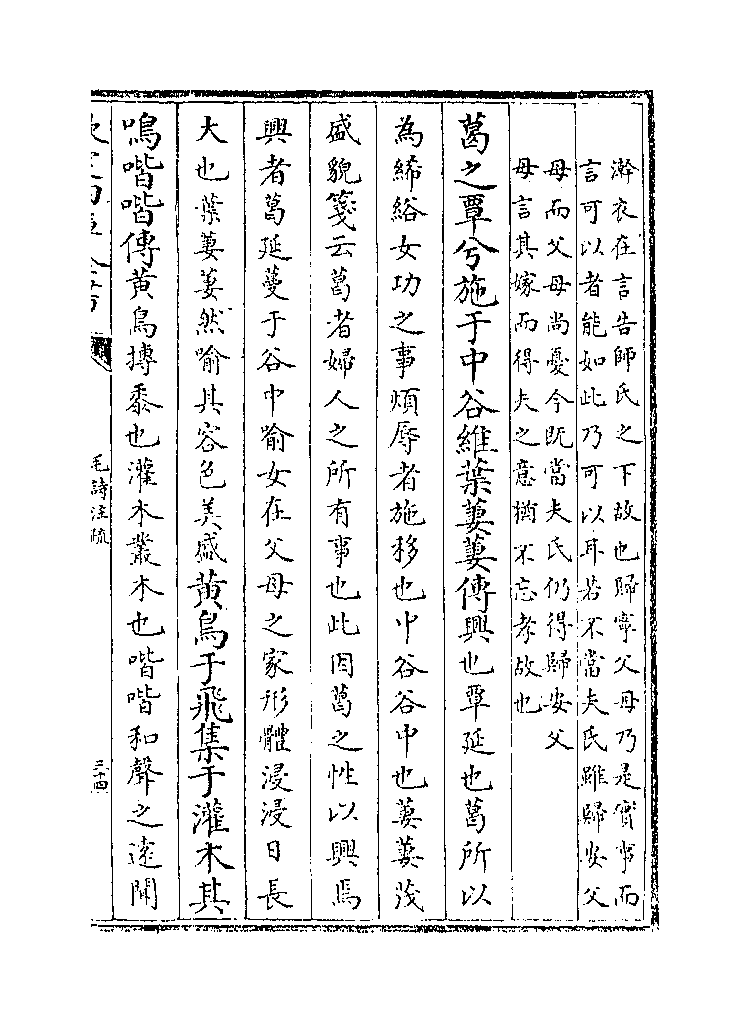 澣衣在言告師氏之下故也歸寧父母乃是實事而
言可以者能如此乃可以耳若不當夫氏雖歸安父
母而父母尚憂今既當夫氏仍得歸安父
母言其嫁而得夫之意猶不忘孝故也
葛之覃兮施于中谷維葉萋萋傳興也覃延也葛所以
為絺綌女功之事煩辱者施移也中谷谷中也萋萋茂
盛貌箋云葛者婦人之所有事也此因葛之性以興焉
興者葛延蔓于谷中喻女在父母之家形體浸浸日長
大也葉萋萋然喻其容色美盛黄鳥于飛集于灌木其
鳴喈喈傳黄鳥搏黍也灌木叢木也喈喈和聲之遠聞
毛詩注疏
三十四